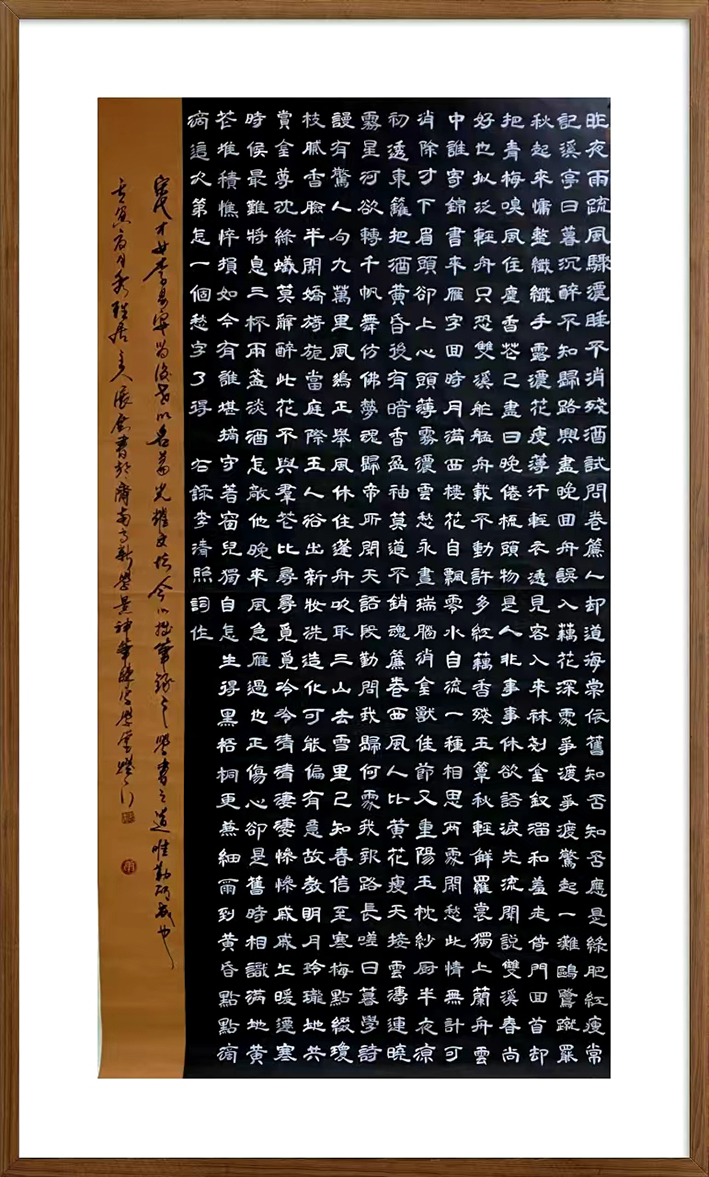 昨夜雨疏風驟濃睡不消殘酒試問卷簾人却道海棠依舊知否知否應是綠肥紅瘦常
記溪亭日暮沉醉不知歸路興盡晚回舟誤入藕花深處爭渡爭渡驚起一灘鷗鷺蹴罷
秋起來慵整纖纖手露濃花瘦薄汗輕衣透見客入來袜剗金釵溜和羞走倚門回首却
把青梅嗅風住塵香花已盡日晚倦梳頭物是人非事事休欲語淚先流聞說雙溪春尚
好也拟泛輕舟只恐雙溪舴艋舟載不動許多紅藕香殘玉簟秋輕解羅裳獨上蘭舟雲
中誰寄錦書來雁字回時月滿西樓花自飄零水自流一種相思兩處閑愁此情無計可
消除才下眉頭卻上心頭薄霧濃雲愁永晝瑞腦消金獸佳節又重陽玉枕紗厨半夜涼
初透東籬把酒黃昏後有暗香盈袖莫道不銷魂簾卷西風人比黃花瘦天接雲濤連曉
霧星河欲轉千帆舞仿佛夢魂歸帝所聞天語殷勤問我歸何處我報路長嗟日暮學詩
謾有驚人句九萬里風鵬正舉風休住蓬舟吹取三山去雪里已知春信至寒梅點綴瓊
枝膩香臉半開嬌旖旎當庭際玉人浴出新妝洗造化可能偏有意故教明月玲瓏地共
賞金尊沈綠蟻莫辭醉此花不與羣花比尋尋覓覓冷冷清清凄凄慘慘戚戚乍暖還寒
時候最難將息三杯兩盞淡酒怎敵他晚來風急雁過也正傷心卻是舊時相識滿地黃
花堆積憔悴損如今有誰堪摘守著窗兒獨自怎生得黑梧桐更兼細雨到黃昏點點滴
滴這次第怎一個愁字了得 右錄李清照詞作
宋代才女李易安為後世以名篇光耀文壇今以拙筆錄之學書之道唯勤研成也
壬寅 居主人張 書於濟南高新學景神筆 學堂燈下